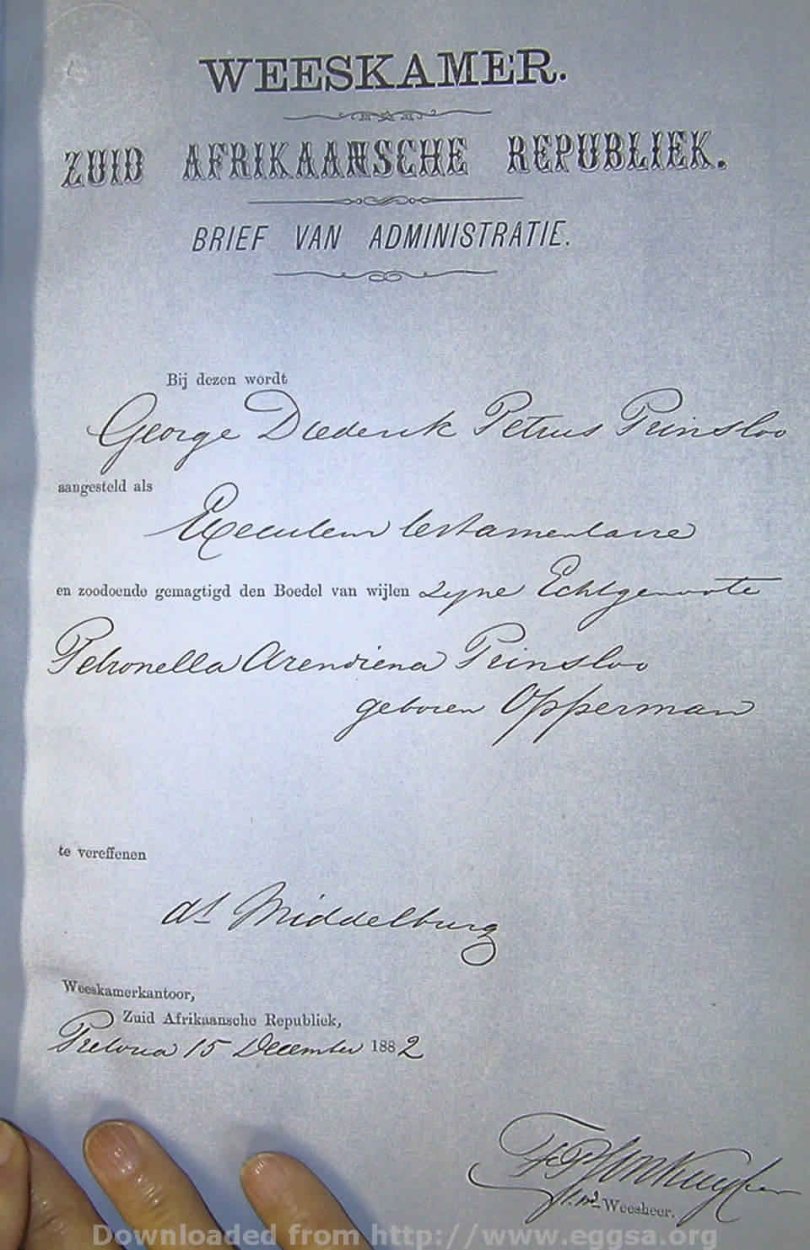 WEESKAMER.
ZUID AFRIKAANSCHE REPUBLIEK.
BRIEF VAN ADMINISTRATIE.
Bij dezen wordt
George Diederik Petrus Prinsloo
aangesteld als
Executeur testamentaire
en zoodoende gemagtigd den Boedel van wijlen zyne Echtgenoote
Petronella Arendiena Prinsloo
geboren Opperman
te vereffenen
at Middelburg
Weeskamerkantoor,
Zuid Afrikaansche Republiek,
Pretoria 15 December 1882
Weesheer.
Downloaded from http://www.eggsa.org